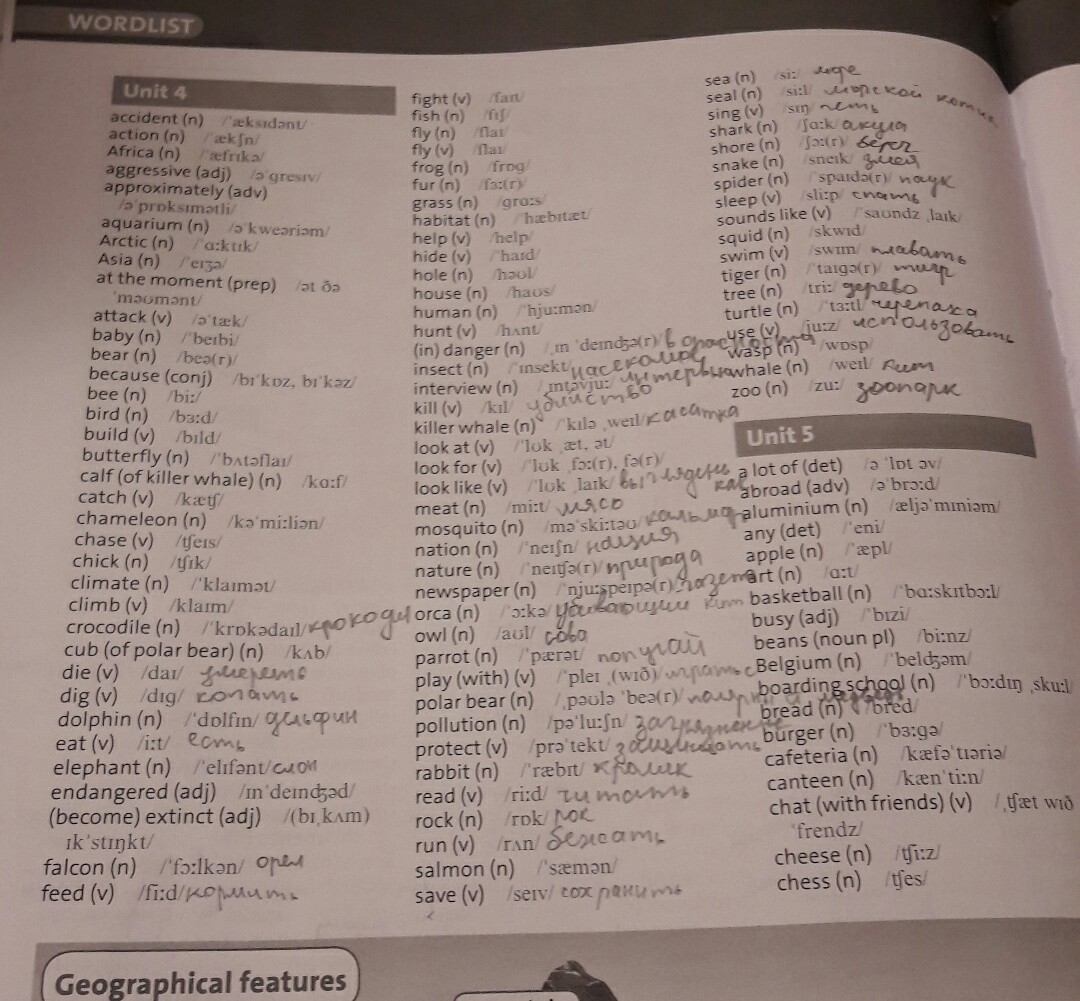 WORDLIST
Unit 4
accident (n) /ˈæksɪdənt/
action (n) /ˈækʃn/
Africa (n) /ˈæfrɪkə/
aggressive (adj) /əˈɡresɪv/
approximately (adv)
/əˈprɒksɪmətli/
aquarium (n) /əˈkweəriəm/
Arctic (n) /ˈɑːktɪk/
Asia (n) /ˈeɪʒə/
at the moment (prep) /ət ðə
ˈməʊmənt/
attack (v) /əˈtæk/
baby (n) /ˈbeɪbi/
bear (n) /beə(r)/
because (conj) /bɪˈkɒz, bɪˈkəz/
bee (n) /biː/
bird (n) /bɜːd/
build (v) /bɪld/
butterfly (n) /ˈbʌtəflaɪ/
calf (of killer whale) (n) /kɑːf/
catch (v) /kætʃ/
chameleon (n) /kəˈmiːliən/
chase (v) /tʃeɪs/
chick (n) /tʃɪk/
climate (n) /ˈklaɪmət/
climb (v) /klaɪm/
crocodile (n) /ˈkrɒkədaɪl/ крокодил
cub (of polar bear) (n) /kʌb/
die (v) /daɪ/ умереть
dig (v) /dɪɡ/ копать
dolphin (n) /ˈdɒlfɪn/ дельфин
eat (v) /iːt/ есть
elephant (n) /ˈelɪfənt/ слон
endangered (adj) /ɪnˈdeɪndʒəd/
(become) extinct (adj) /(bɪˌkʌm)
ɪkˈstɪŋkt/
falcon (n) /ˈfɔːlkən/ орел
feed (v) /fiːd/ кормить
fight (v) /faɪt/
fish (n) /fɪʃ/
fly (n) /flaɪ/
fly (v) /flaɪ/
frog (n) /frɒɡ/
fur (n) /fɜː(r)/
grass (n) /ɡrɑːs/
habitat (n) /ˈhæbɪtæt/
help (v) /help/
hide (v) /ˈhaɪd/
hole (n) /həʊl/
house (n) /haʊs/
human (n) /ˈhjuːmən/
hunt (v) /hʌnt/
(in) danger (n) /ˌɪn ˈdeɪndʒə(r)/ в опасности
insect (n) /ˈɪnsekt/ насекомое
interview (n) /ˈɪntəvjuː/ интервью
kill (v) /kɪl/ убийство
killer whale (n) /ˈkɪlə ˌweɪl/ касатка
look at (v) /ˈlʊk ˌæt, ət/
look for (v) /ˈlʊk ˌfɔː(r), fə(r)/
look like (v) /ˈlʊk ˌlaɪk/ выглядеть как
meat (n) /miːt/ мясо
mosquito (n) /məˈskiːtəʊ/
nation (n) /ˈneɪʃn/ нация
nature (n) /ˈneɪtʃə(r)/ природа
newspaper (n) /ˈnjuːspeɪpə(r)/
orca (n) /ˈɔːkə/ убивающий кит
owl (n) /aʊl/ сова
parrot (n) /ˈpærət/ попугай
play (with) (v) /ˈpleɪ ˌ(wɪð)/ играть с
polar bear (n) /ˌpəʊlə ˈbeə(r)/
pollution (n) /pəˈluːʃn/ загрязнение
protect (v) /prəˈtekt/ защищать
rabbit (n) /ˈræbɪt/ кролик
read (v) /riːd/ читать
rock (n) /rɒk/ рок
run (v) /rʌn/ бежать
salmon (n) /ˈsæmən/
save (v) /seɪv/ сохранить
sea (n) /siː/ море
seal (n) /siːl/ морской котик
sing (v) /sɪŋ/ петь
shark (n) /ʃɑːk/ акула
shore (n) /ʃɔː(r)/ берег
snake (n) /sneɪk/ змея
spider (n) /ˈspaɪdə(r)/ паук
sleep (v) /sliːp/ спать
sounds like (v) /ˈsaʊndz ˌlaɪk/
squid (n) /skwɪd/
swim (v) /swɪm/ плавать
tiger (n) /ˈtaɪɡə(r)/ тигр
tree (n) /triː/ дерево
turtle (n) /ˈtɜːtl/ черепаха
use (v) /juːz/ использовать
wasp (n) /wɒsp/
whale (n) /weɪl/ кит
zoo (n) /zuː/ зоопарк
Unit 5
a lot of (det) /ə ˈlɒt əv/
abroad (adv) /əˈbrɔːd/
aluminium (n) /æljəˈmɪniəm/
any (det) /ˈeni/
apple (n) /ˈæpl/
art (n) /ɑːt/
basketball (n) /ˈbɑːskɪtbɔːl/
busy (adj) /ˈbɪzi/
beans (noun pl) /biːnz/
Belgium (n) /ˈbeldʒəm/
boarding school (n) /ˈbɔːdɪŋ ˌskuːl/
bread (n) /bred/
burger (n) /ˈbɜːɡə/
cafeteria (n) /kæfəˈtɪəriə/
canteen (n) /kænˈtiːn/
chat (with friends) (v) /ˌtʃæt wɪð
ˈfrendz/
cheese (n) /tʃiːz/
chess (n) /tʃes/
Geographical features